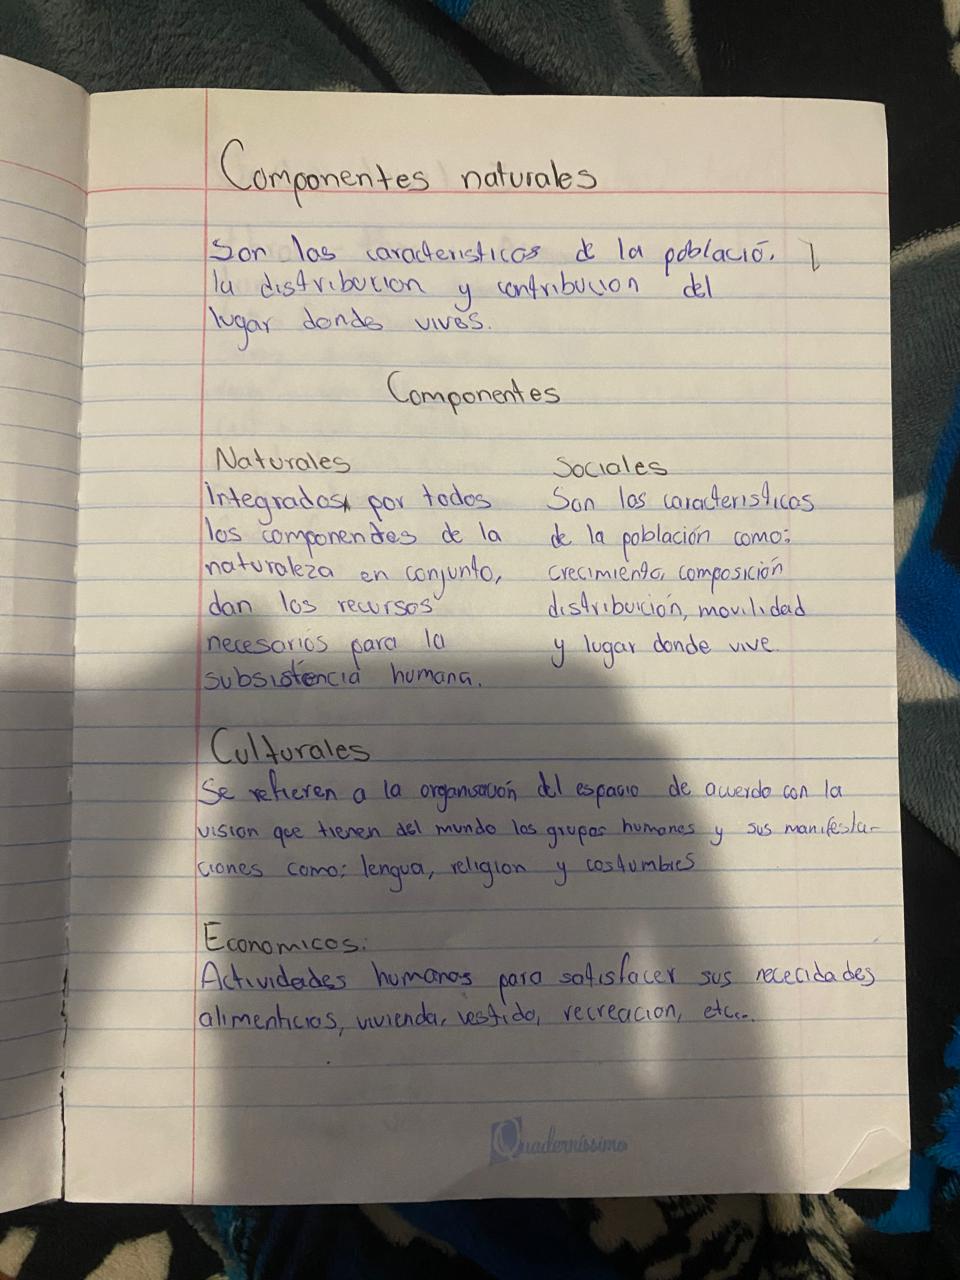 Componentes naturales
Son las caracteristicas de la població.
la distribucion y contribucion del
lugar donde vives.
Componentes
Naturales
Integradas por todos
los componentes de la
naturaleza en conjunto,
dan los recursos
necesarios para la
subsistencia humana.
Sociales
Son las caracteristicas
de la población como:
crecimiento, composición
distribución, movilidad
y lugar donde vive.
Culturales
Se refieren a la organisación del espacio de acuerdo con la
vision que tienen del mundo los grupos humanos y sus manifesta-
ciones como: lengua, religion y costumbres
Economicos:
Actividades humanas para satisfacer sus nececidades
alimenticias, vivienda, vestido, recreacion, etc...
Quadernissimo